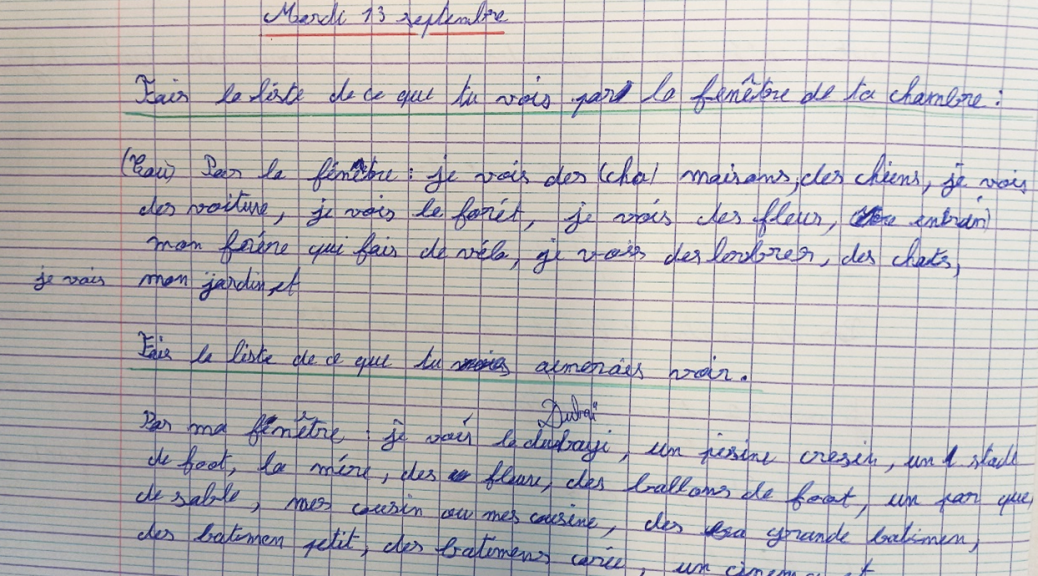 Mardi 13 septembre
Fais la liste de ce que tu vois par la fenêtre de ta chambre :
Par la fenêtre : je vois des (cha) maisons, des chiens, je vois
des voiture, je vois le forét, je vois des fleur, entrán)
mon frére qui fais de vélo, je vois des des chats,
je vois mon jardin, et
Fais la liste de ce que tu aimerais voir.
Dubaï
Par ma fenêtre : je vois le dubayi, un pisine cresin, un stade
de foot, la mére, des fleure, des ballons de foot, un par que
de sable, mes cousin ou mes cousine, des grande batimen,
des batimen petit, des batimens carée, un cinema et